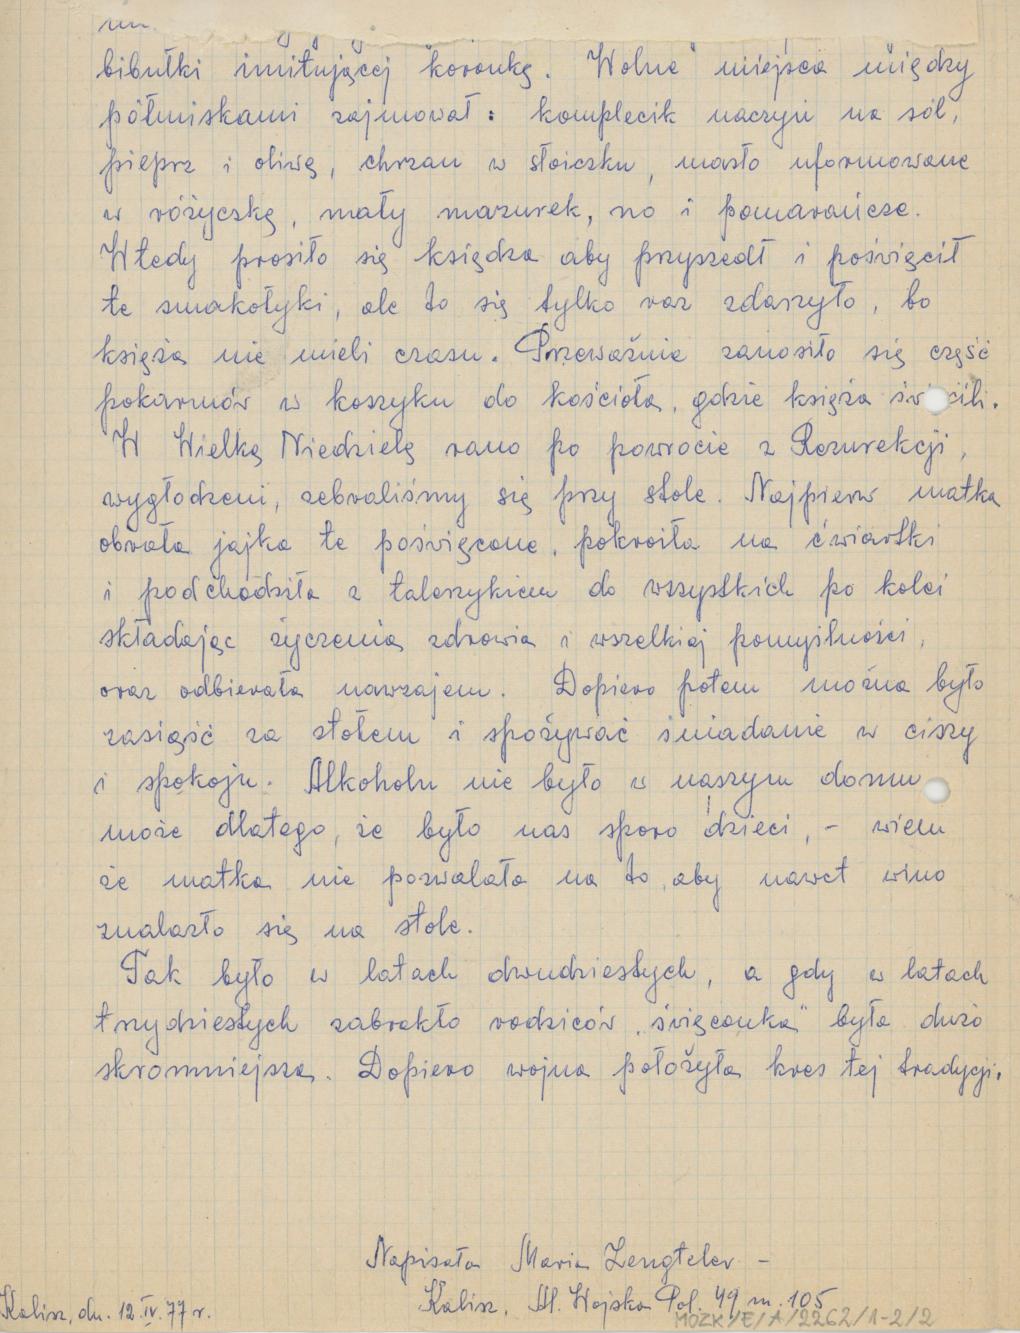 bibułki imitującej koronkę. Wolne miejsca między
półmiskami zajmował: komplecik naczyń na sól,
pieprz i oliwę, chrzan w słoiczku, masło uformowane
w różyczkę, mały mazurek, no i pomarańcze.
Wtedy prosiło się księdza aby przyszedł i poświęcił
te smakołyki, ale to się tylko raz zdarzyło, bo
księża nie mieli czasu. Przeważnie zanosiło się część
pokarmów w koszyku do kościoła, gdzie księża święcili.
W Wielką Niedzielę rano po powrocie z Rezurekcji,
wygłodzeni, zebraliśmy się przy stole. Najpierw matka
obrała jajka te poświęcone, pokroiła na ćwiartki
i podchodziła z talerzykiem do wszystkich po kolei
składając życzenia zdrowia i wszelkiej pomyślności,
oraz odbierała nawzajem. Dopiero potem można było
zasiąść za stołem i spożywać śniadanie w ciszy
i spokoju. Alkoholu nie było w naszym domu
może dlatego, że było nas sporo dzieci, - wiem
że matka nie pozwalała na to, aby nawet wino
znalazło się na stole.
Tak było w latach dwudziestych, a gdy w latach
trzydziestych zabrakło rodziców „święconka" była dużo
skromniejsza. Dopiero wojna położyła kres tej tradycji.
Napisała Maria Zengteler -
Kalisz, Al. Wojska Pol. 49 m. 105
Kalisz, dn. 12.IV.77 r.
MOZK/E/A/2262/1-2/2